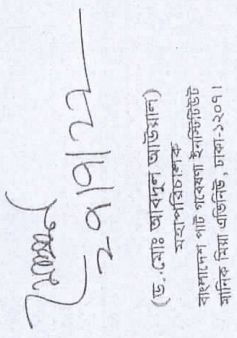 ২৭/৭/২২
(ড. মোঃ আবদুল আউয়াল)
মহাপরিচালক
বাংলাদেশ পাট গবেষণা ইনস্টিটিউট
মানিক মিয়া এভিনিউ, ঢাকা-১২০৭।